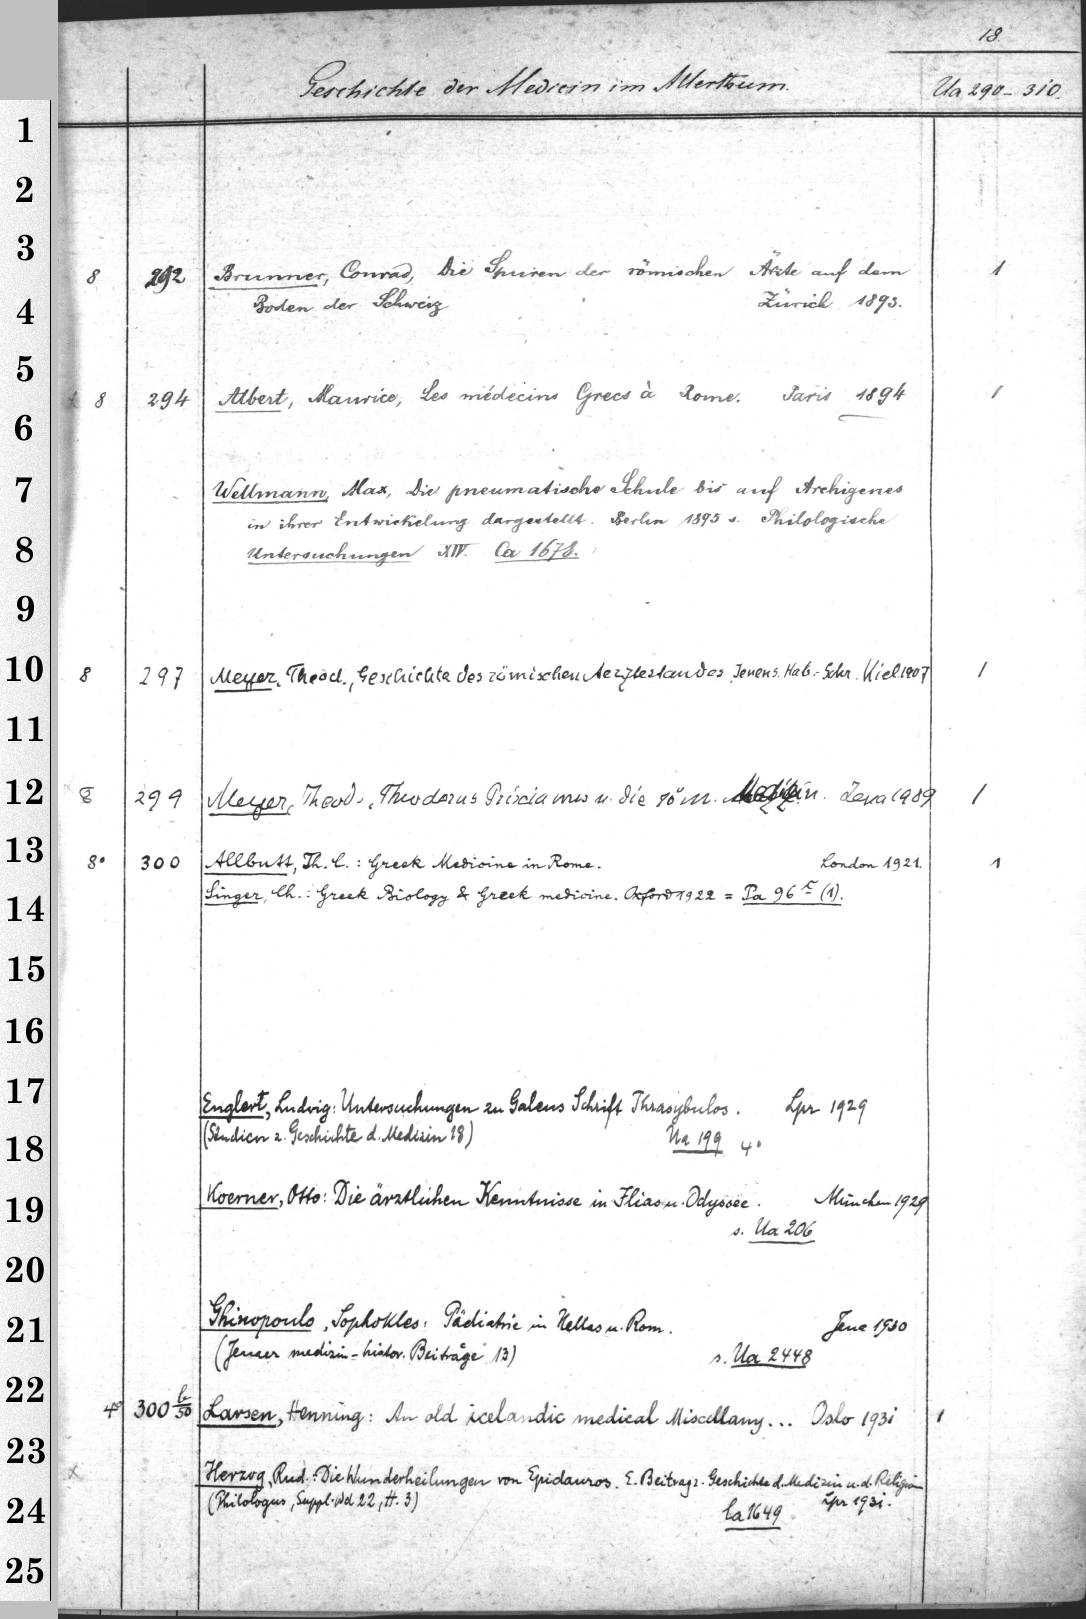 18.
Geschichte der Medicin im Alterthum.
Ua 290-310.
1
2
3
8 292 Brunner, Conrad, Die Spuren der römischen Ärzte auf dem 1
Boden der Schweiz Zürich 1893.
4
5
8 294 Albert, Maurice, Les médecins Grecs à Rome. Paris 1894 1
6
7 Wellmann, Max, Die pneumatische Schule bis auf Archigenes
in ihrer Entwickelung dargestellt. Berlin 1895 s. Philologische
8 Untersuchungen XIV. Ca 1678.
9
10 8 297 Meyer, Theod., Geschichte des römischen Aerztestandes Jenens. Hab.-Schr. Kiel 1907 1
11
12 8 299 Meyer, Theod., Theodorus Priscianus u. die röm. Medizin. Jena 1909 1
13 8° 300 Allbutt, Th. C.: Greek Medicine in Rome. London 1921. 1
Singer, Ch.: Greek Biology & Greek medicine. Oxford 1922 = Pa 96 r (1).
14
15
16
17 Englert, Ludwig: Untersuchungen zu Galens Schrift Thrasybulos. Lpz 1929
(Studien z. Geschichte d. Medizin 18) Ua 199 4°
18
19 Koerner, Otto: Die ärztlichen Kenntnisse in Ilias u. Odyssee. München 1929
s. Ua 206
20
21 Ghinopoulo, Sophokles: Pädiatrie in Hellas u. Rom. Jena 1930
(Jenaer medizin-histor. Beiträge 13) s. Ua 2448
22
4° 300 b/50 Larsen, Henning: An old icelandic medical Miscellany... Oslo 1931 1
23
x Herzog, Rud.: Die Wunderheilungen von Epidauros. E. Beitrag z. Geschichte d. Medizin u. d. Religion
24 (Philologus, Suppl.-Bd 22, H. 3) Lpz 1931.
Ca 1649
25